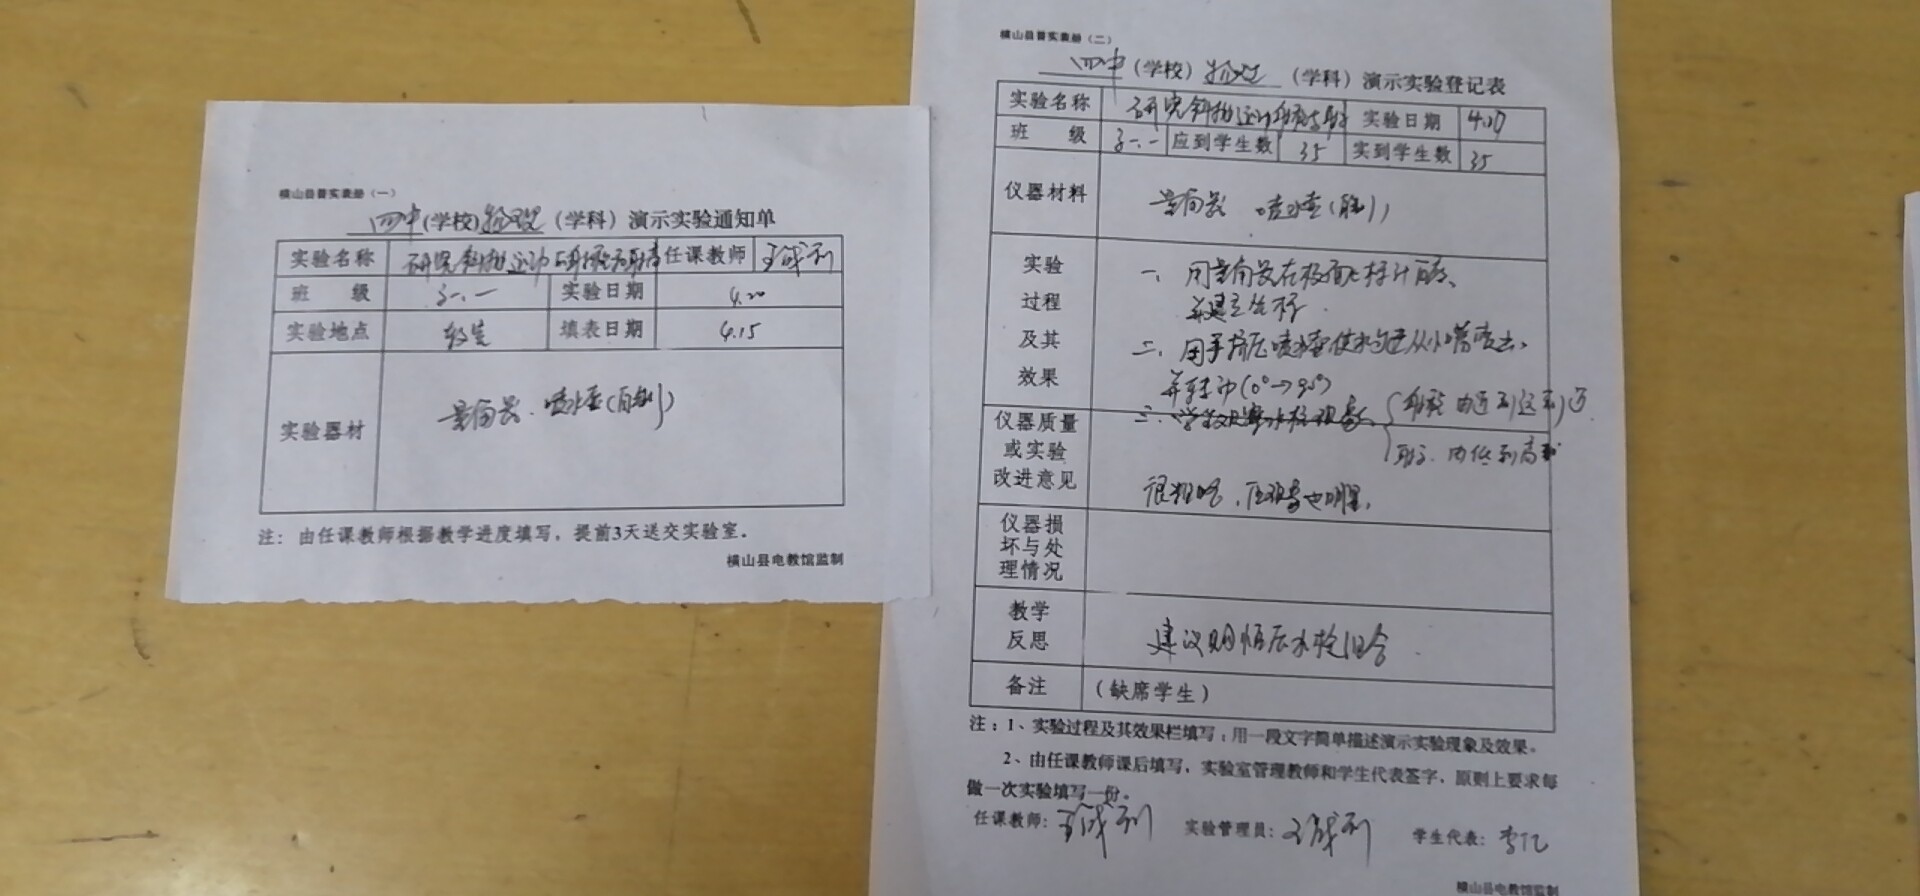 横山县普实表册（一）
四中(学校)物理(学科）演示实验通知单
实验名称 研究斜抛运动 任课教师 王成利
班 级 实验日期 4.20
实验地点 教室 填表日期 4.15
实验器材 量角器、喷水壶(自制)
注：由任课教师根据教学进度填写，提前3天送交实验室。
横山县电教馆监制
横山县普实表册（二）
四中（学校）物理（学科）演示实验登记表
实验名称 研究斜抛运动 实验日期
班 级 应到学生数 35 实到学生数 35
仪器材料 量角器 喷水壶(自制)
实验过程及其效果
一、用量角器在板面上标计角度、
并建立坐标.
二、用手挤压喷水壶使水匀速从小嘴喷出、
并转动(0°→90°)
射程 由近到远到近
射高 由低到高
仪器质量或实验改进意见
很粗略，但现象也明显.
仪器损坏与处理情况
教学反思
建议用恒压水枪
备注 （缺席学生）
注：1、实验过程及其效果栏填写：用一段文字简单描述演示实验现象及效果。
2、由任课教师课后填写，实验室管理教师和学生代表签字，原则上要求每
做一次实验填写一份。
任课教师：王成利 实验管理员：王成利 学生代表：
横山县电教馆监制